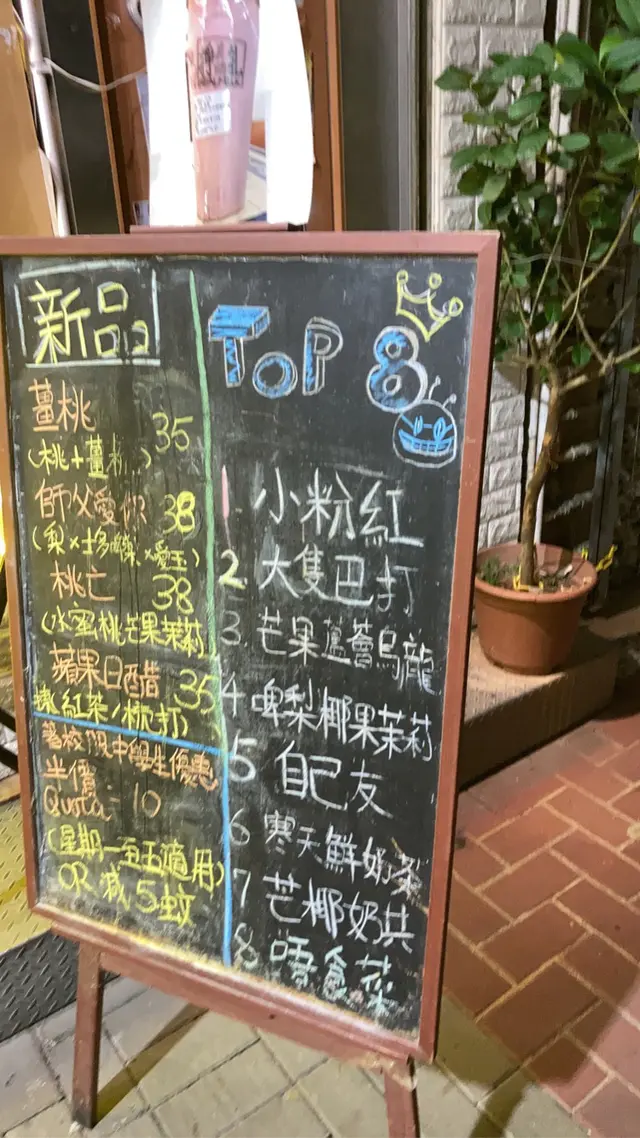 新品
薑桃 35
(桃+薑粉)
師父愛你 38
(梨×士多啤梨×愛玉)
桃亡 38
(水蜜桃芒果茉莉)
蘋果日醋 35
紅茶/梳打)
著校服中學生優惠
半價
Quota=10
(星期一至五適用)
OR 減5蚊
TOP 8
1 小粉紅
2 大隻巴打
3 芒果蘆薈烏龍
4 啤梨椰果茉莉
5 自己友
6 寒天鮮奶茶
7 芒椰奶共
8 唔食菜